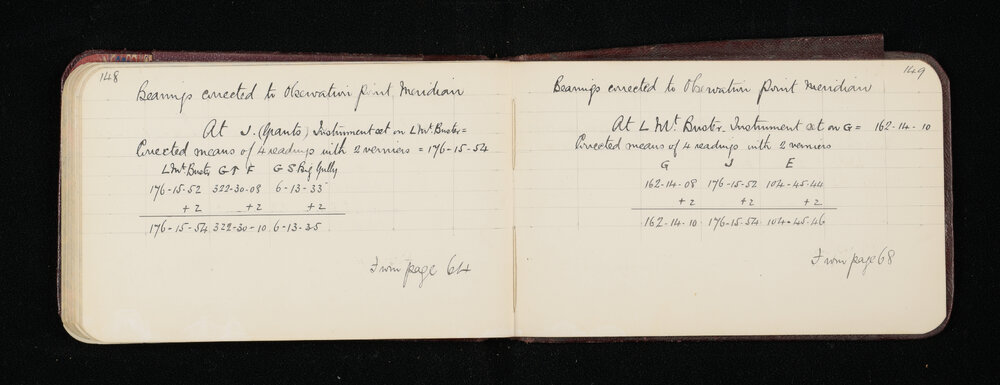 148
Bearings corrected to Observation point Meridian
At J. (Grants) Instrument set on L Mt. Buster =
Corrected means of 4 readings with 2 verniers = 176-15-54
L Mt Buster G T F G S Gully
176-15-52 322-30-08 6-13-33
+2 +2 +2
176-15-54 322-30-10 6-13-35
From page 64
149
Bearings corrected to Observation point Meridian
At L Mt. Buster. Instrument set on G = 162-14-10
Corrected means of 4 readings with 2 verniers
G J E
162-14-08 176-15-52 104-45-44
+2 +2 +2
162-14-10 176-15-54 104-45-46
From page 68